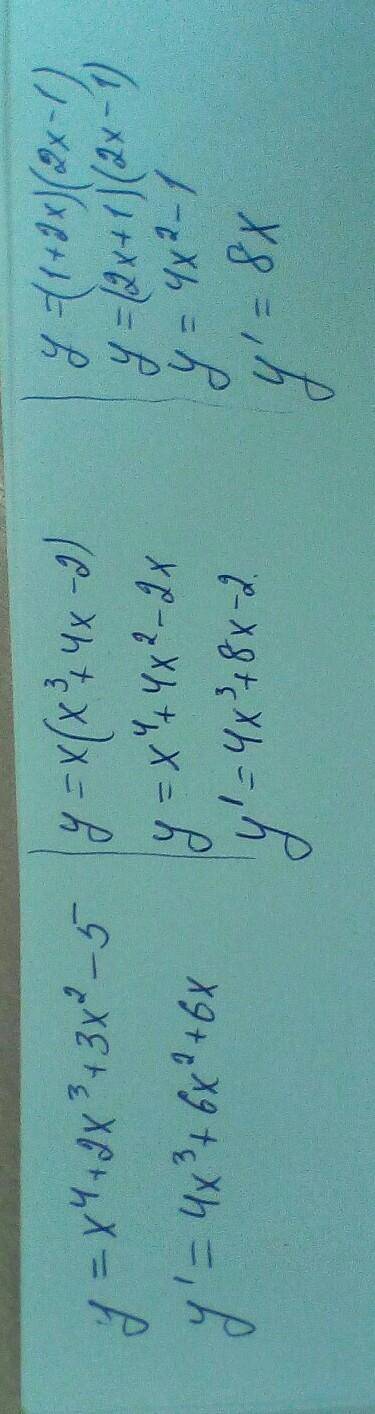 y = x⁴+2x³+3x²-5
y' = 4x³+6x²+6x
y = x(x³+4x-2)
y = x⁴+4x²-2x
y' = 4x³+8x-2
y = (1+2x)(2x-1)
y = (2x+1)(2x-1)
y = 4x²-1
y' = 8x